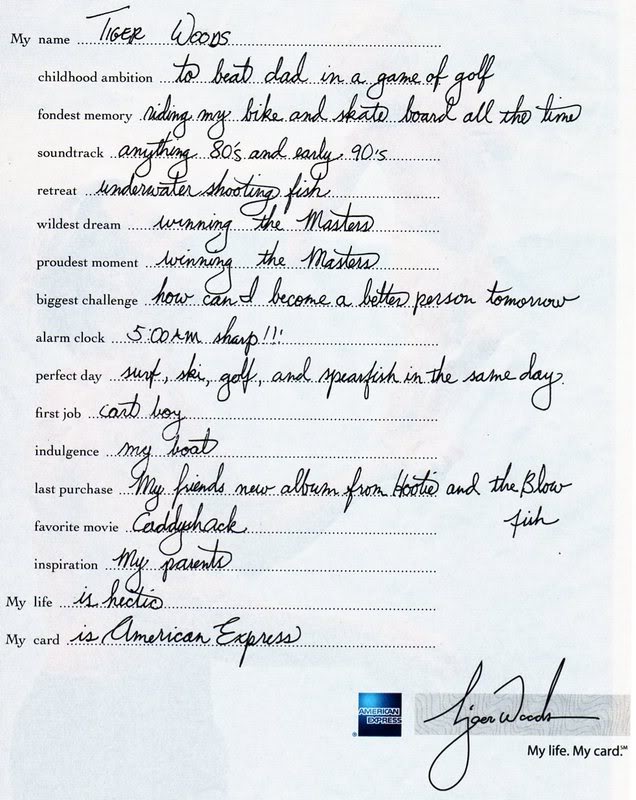 My name TIGER WOODS
childhood ambition to beat dad in a game of golf
fondest memory riding my bike and skate board all the time
soundtrack anything 80's and early 90's
retreat underwater shooting fish
wildest dream winning the Masters
proudest moment winning the Masters
biggest challenge how can I become a better person tomorrow
alarm clock 5:00 AM sharp!!!
perfect day surf, ski, golf, and spearfish in the same day.
first job cart boy
indulgence my boat
last purchase My friends new album from Hootie and the Blow
fish
favorite movie Caddyshack
inspiration My parents
My life is hectic
My card is American Express
AMERICAN EXPRESS
®
Tiger Woods
My life. My card.℠